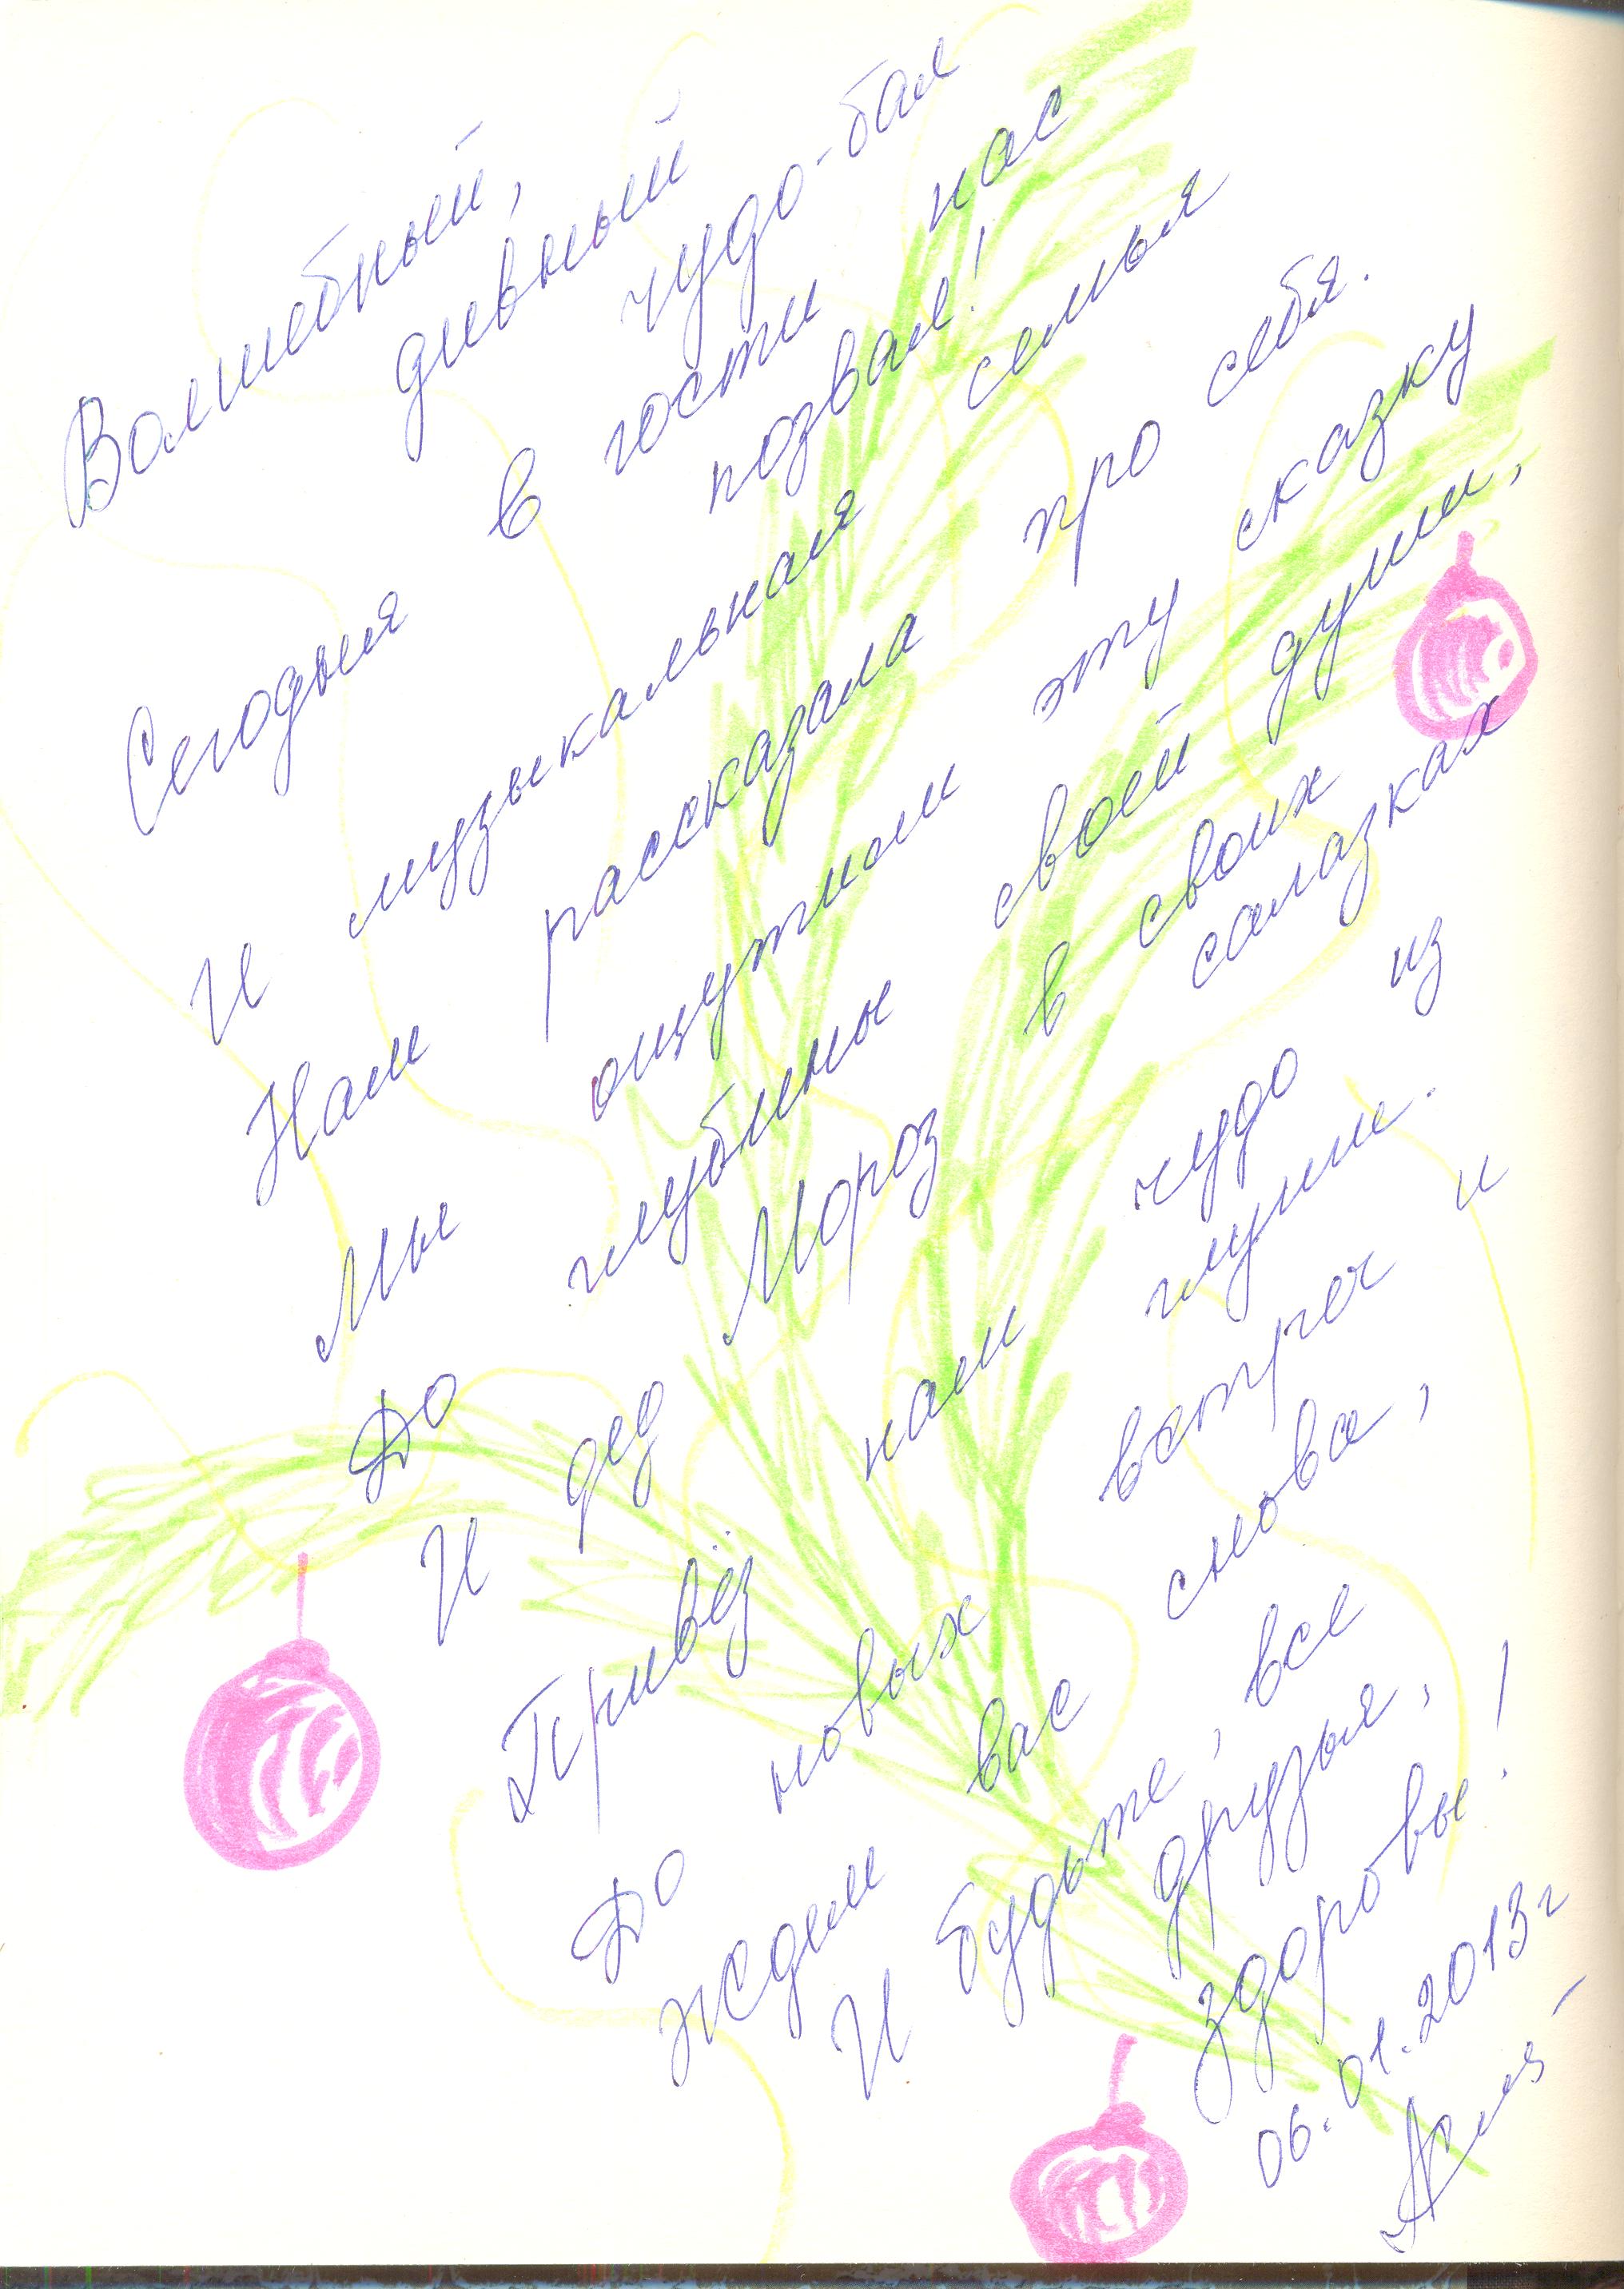 Волшебный,
дивный
чудо-бал
Сегодня в гости нас
позвал!
И музыкальная семья
Нам рассказала про себя.
Мы ощутили эту сказку
До глубины своей души,
И дед Мороз в своих
салазках
Привёз нам чудо из
глуши.
До новых встреч и
ждем вас снова,
И будьте, все
друзья,
здоровы!
06.01.2013г